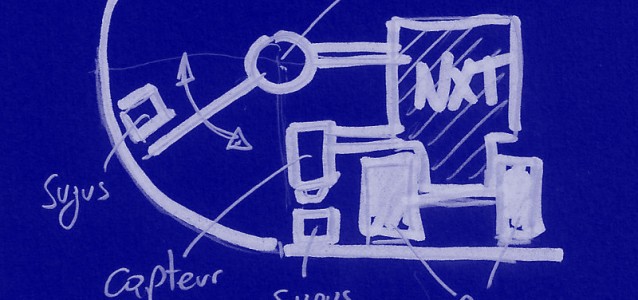 NXT
Sujus
Capteur
Sujus